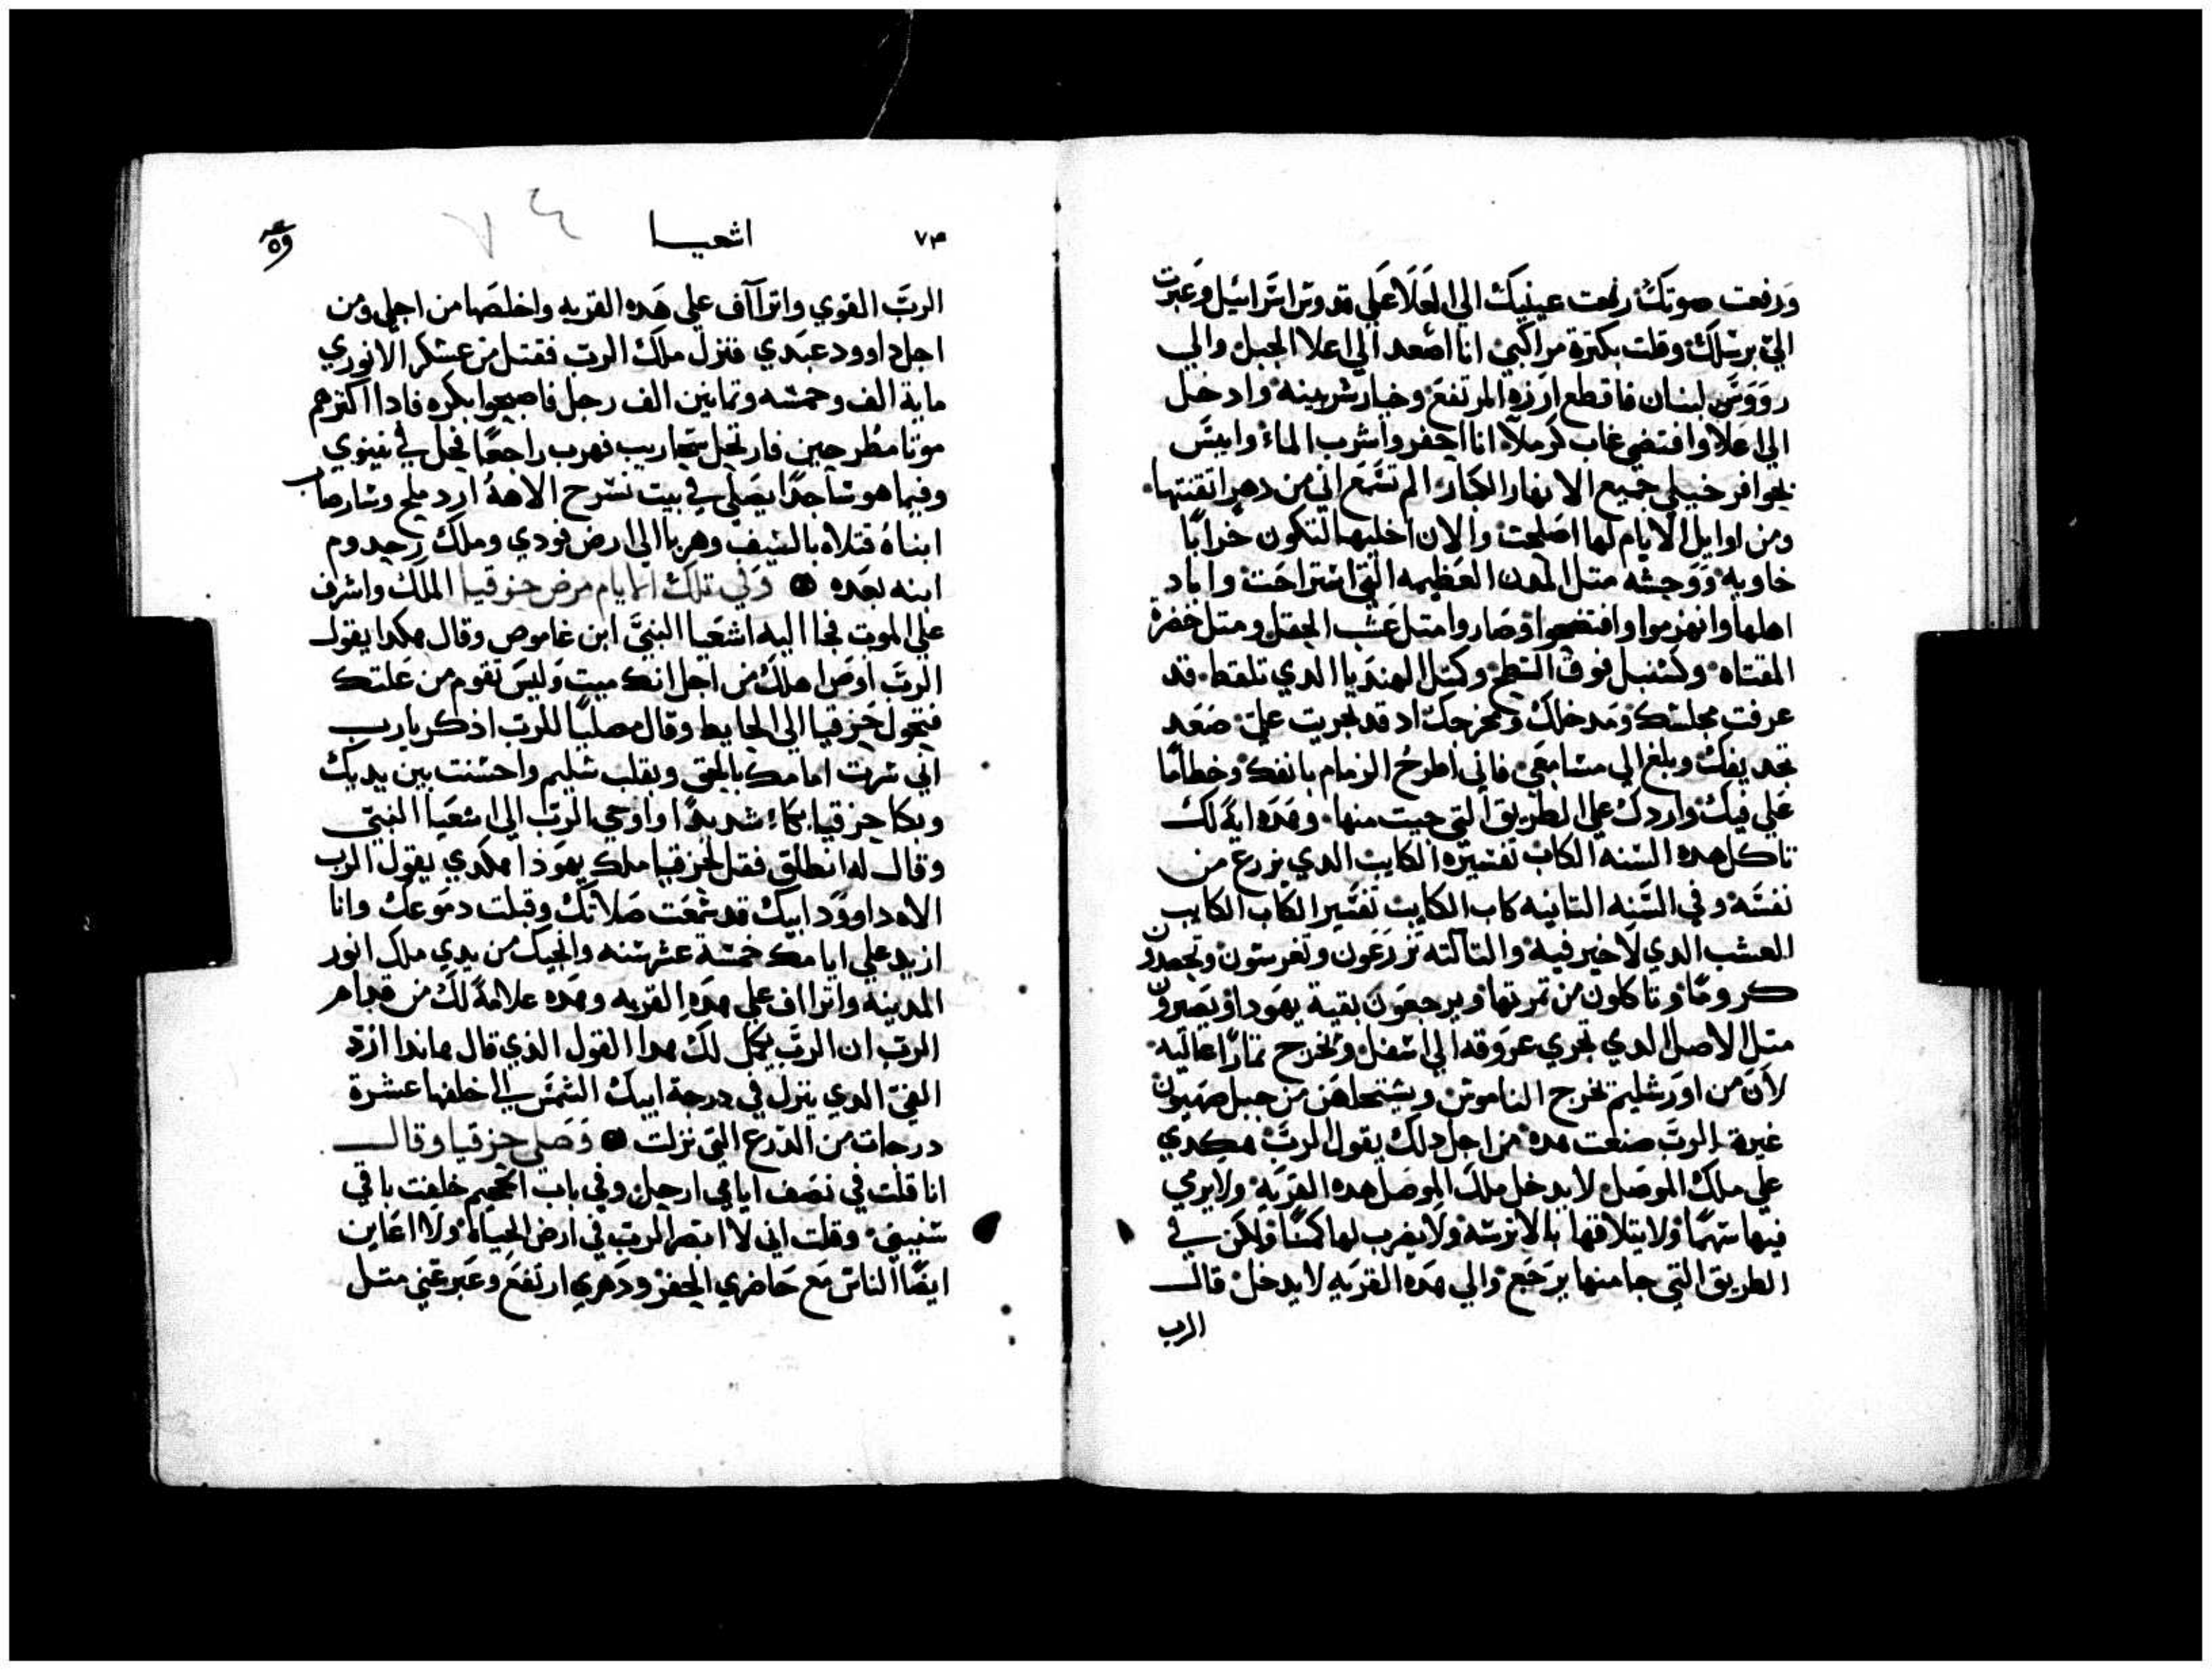 ورفعت صوتك رفعت عينيك الي العلا علي قدوس اسراييل وعبرت
الي برسلك وقلت بكترة مراكبي انا اصعد الي اعلا الجبل والي
رووس لبنان فاقطع ارزه المرتفع وخيار شربينه وادخل
الي اعلا وافتضي غاب كرملا انا احفر واشرب الماء وايبس
بحوافر خيلي جميع الانهار الكبار الم تسمع اني من دهر اتقنتها
ومن اوايل الايام لها اصلحت والان اخليها لتكون خرابا
خاويه ووحشه متل المدن العظيمه التي استراحت واباد
اهلها وانهزموا وافتضحوا وصاروا متل عشب الحقل ومتل خضرة
المقتاه وكسنبل فوق السطح وكتل الهنديا الدي تلقط قد
عرفت مجلسك ومدخلك ومخرجك اد قد تجريت علي صعد
تجديفك وبلغ الي مسامعي فاني اطرح الزمام بانفك وخطاما
علي فيك واردك علي الطريق التي جيت منها وهده اية لك
تاكل هده السنه الكات تفسيره الكايت الدي يزرع من
نفسه وفي السنه التانيه كات الكايت تفسير الكات الكايب
العشب الدي لا خير فيه والتالته تزرعون وتغرسون وتحصدون
كروما وتاكلون من تمرتها ويرجعون بقية يهودا ويصيرون
متل الاصل الدي تجري عروقه الي اسفل وتخرج تمارا عاليه
لان من اورشليم تخرج الناموس ويستحلص من جبل صهيون
غيرة الرب صنعت هده من اجل دلك يقول الرب هكدي
علي ملك الموصل لا يدخل ملك الموصل هده القريه ولا يرمي
فيها سهما ولا يتلاقها بالاترسة ولا يضرب لها كمينا ولكن في
الطريق التي جا منها يرجع والي هده القريه لا يدخل قال
الرب
٧٣ اشعيا ٧٤
الرب القوي واتراآف علي هده القريه واخلصها من اجلي ومن
اجل داوود عبدي فنزل ملك الرب فقتل من عسكر الاتوري
ماية الف وخمسه وتمانين الف رجل فاصبحوا بكره فادا اكترهم
موتا مطرحين فارتحل سحاريب فهرب راجعا فحل في نينوي
وفيما هو ساجدا يصلي في بيت نسرح الاهة اردملح وساراصاب
ابناه قتلاه بالسيف وهربا الي ارض قودي وملك رحدوم
ابنه بعده وفي تلك الايام مرض حزقيا الملك واشرف
علي الموت فجا اليه اشعيا النبي ابن غاموص وقال هكدا يقول
الرب اوص اهلك من اجل انك ميت وليس تقوم من علتك
فتحول حزقيا الي الحايط وقال مصليا للرب اذكر يارب
اني سرت امامك بالحق وبقلب سليم واحسنت بين يديك
وبكا حزقيا بكاء شديدا واوحي الرب الي اشعيا النبي
وقال له انطلق فقل لحزقيا ملك يهوذا هكدي يقول الرب
الاه داوود ابيك قد سمعت صلاتك وقبلت دموعك وانا
ازيد علي ايامك خمسة عشر سنه وانجيك من يدي ملك اتور
المدينه واتراف علي هده القريه وهده علامة لك من قدام
الرب ان الرب يكمل لك هدا القول الذي قال هاندا ازد
الفي الدي ينزل في درجة ابيك الشمس الي خلفها عشرة
درجات من الدرج التي نزلت وصلي حزقيا وقال
انا قلت في نصف ايامي ارحل وفي باب الجحيم خلفت باقي
سنيني وقلت اني لا ابصر الرب في ارض الحياة ولا اعاين
ايضا الناس مع حاضري الحفر ودهري ارتفع وعبر عني متل